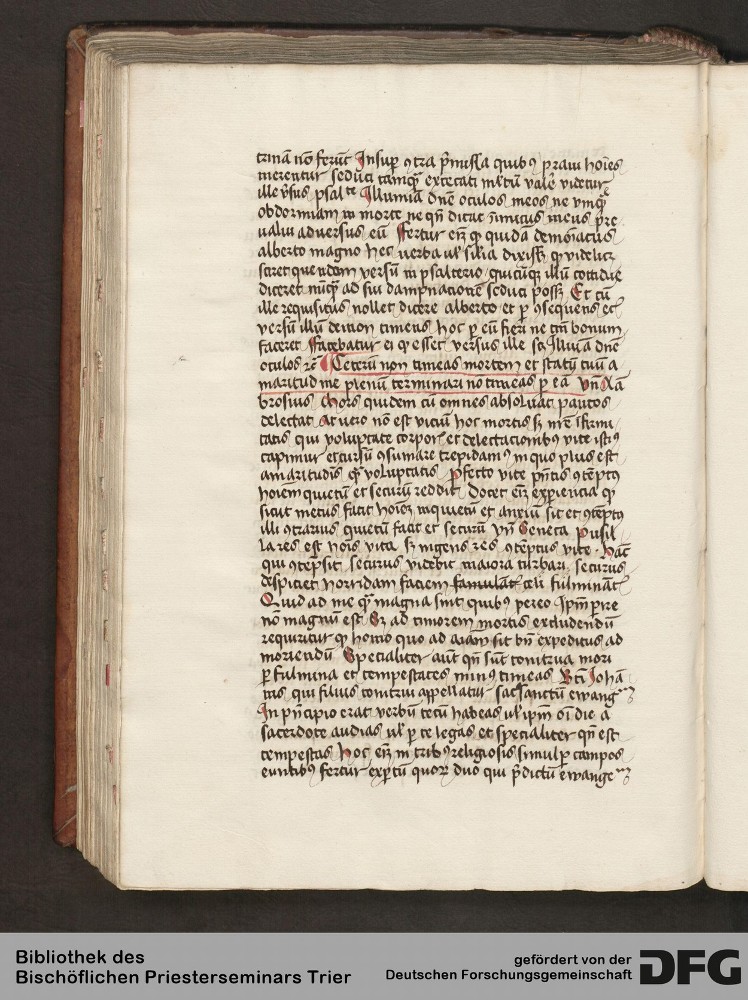 trinā nō ferūt Insup ꝯtra p̄missa quibꝰ praui hoīes
merentur seduci tamqͣ excecati ml̄tū vale videtur
ille v̄sus psalte Illumīa dn̄e oculos meos ne vmqͣ
obdormiam in morte ne qn̄ dicat īnimicus meus pre
ualui aduersus eū Fertur em̄ ꝙ quidā demōiacus
alberto magno hec verba ul̓ sil̓ia dixiss ꝙ videlicꝫ
sciret quendam versū in psalterio quicūqꝫ illū cottidie
diceret nūqͣ ad sui dampnacionē seduci possꝫ Et cū
ille requisitus nollet dicere alberto et ꝑ ꝯsequens et
versū illū timens hoc ꝑ eū fieri ne tm̄ bonum
faceret Fatebatur ei ꝙ esset versus ille sc̄ Illuīa dn̄e
oculos Ceterū non timeas mortem et statū tuū a
maritud me plenū terminari no timeas ꝑ ea Vn̄ Am̄
brosius Mors quidem cū omnes absoluat paucos
delectat At vero nō est viciū hoc mortis sꝫ nr̄e īfirmi
tatis qui voluptate corporꝭ et delectacionibꝰ vite istiꝰ
capimur et cursū ꝯsumare trepidamꝰ in quo plus est
amaritudīs qͣ voluptatis ꝑfecto vite pn̄tis ꝯtēptꝰ
hoīem quietū et securū reddit Docet em̄ experiencia ꝙ
sicut metus facit hoīeꝫ inquietū et anxiū sic et ꝯtēptꝰ
illi ꝯtrarius quietū facit et securū Vn̄ Seneca Pusil
la res est hoīs vita sꝫ ingens res ꝯtēptus vite Hāc
qui ꝯtēpsit securus videbit maiora turbari securus
despiciet horridam faciem celi fulminātꝭ
Quid ad me qͣ magna sint quibꝰ pereo Ip̄m pire
nō magnū est Sꝫ ad timorem mortis excludendū
requiritur ꝙ homo quo ad aīam sit bn̄ expeditus ad
moriendū Specialiter aūt qn̄ sūt tonitrua mori
ꝑ fulmina et tempestates minꝰ timeas Bti Johā
nis qui filius tonitrui appellatur sac̄sanctū ewang
In pn̄cipio erat verbū tecū habeas ul̓ ip̄m oī die a
sacerdote audias ul̓ ꝑ te legas et specialiter qn̄ est
tempestas Hoc em̄ in tribꝰ religiosis simul ꝑ campos
euntibꝰ fertur exꝑtū quoꝝ duo qui p̄dictū ewange
Bibliothek des
Bischöflichen Priesterseminars Trier
gefördert von der
Deutschen Forschungsgemeinschaft
DFG